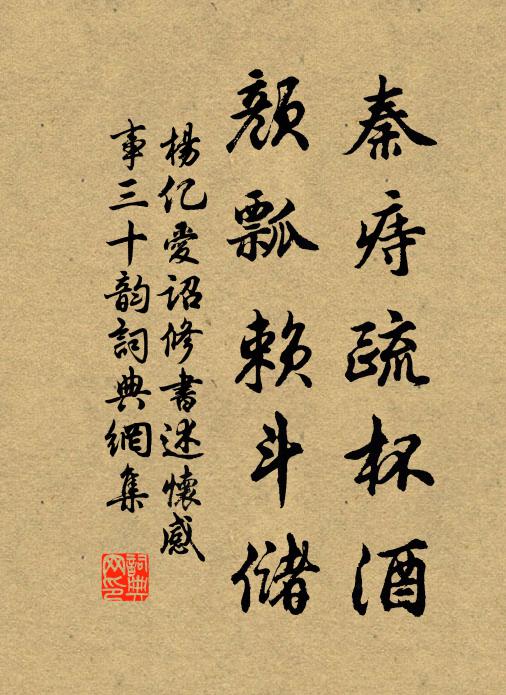 秦痔疏杯酒
颜瓢赖斗储
杨亿爱诏修书述怀感
事三十韵词典网集
词典网印